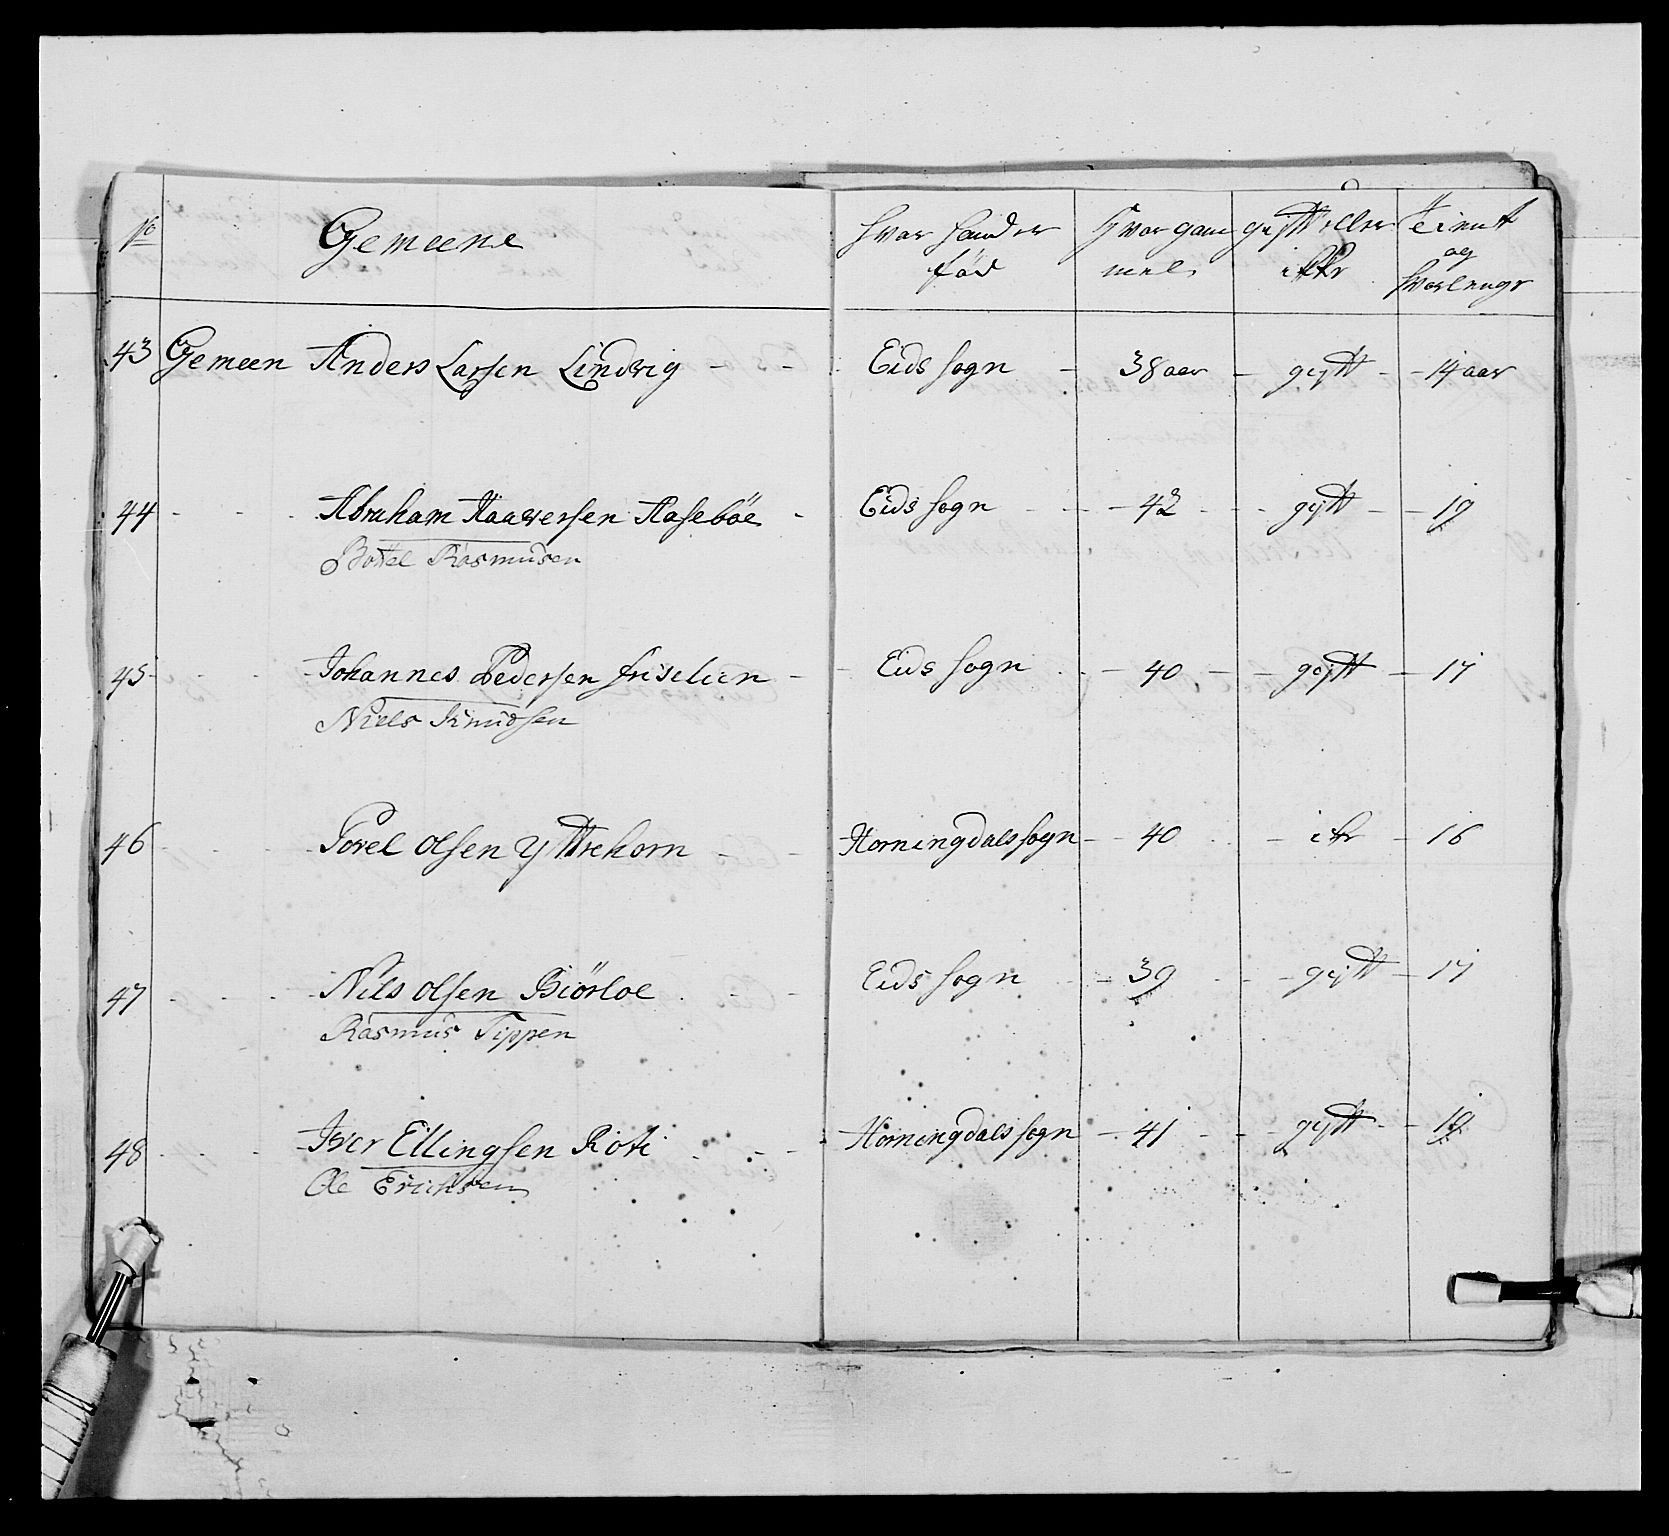 No Gemeene hvor hand er Hvor gam gift eller tient
fød mel ikke og
hvorlenge
43 Gemeen Anders Larsen Lindvig - - Eids sogn - 38 aar - gift - 14 aar
44 - - - Abraham Haaversen Aasebøe - Eids sogn - 42 - gift - 19
Bottel Rasmusen
45 - - - Johannes Pedersen friselien - Eids sogn - 40 - gift - 17
Niels Knudsen
46 - - - Povel Olsen Yttrehorn - - Horningdals sogn - 40 - ike - 16
47 - - - Nils Olsen Biörloe - - Eids sogn - 39 - gift - 17
Rasmus Tippen
48 - - - Iver Ellingsen Roti - - - Horningdals sogn - 41 - gift - 19
Ole Erichsen